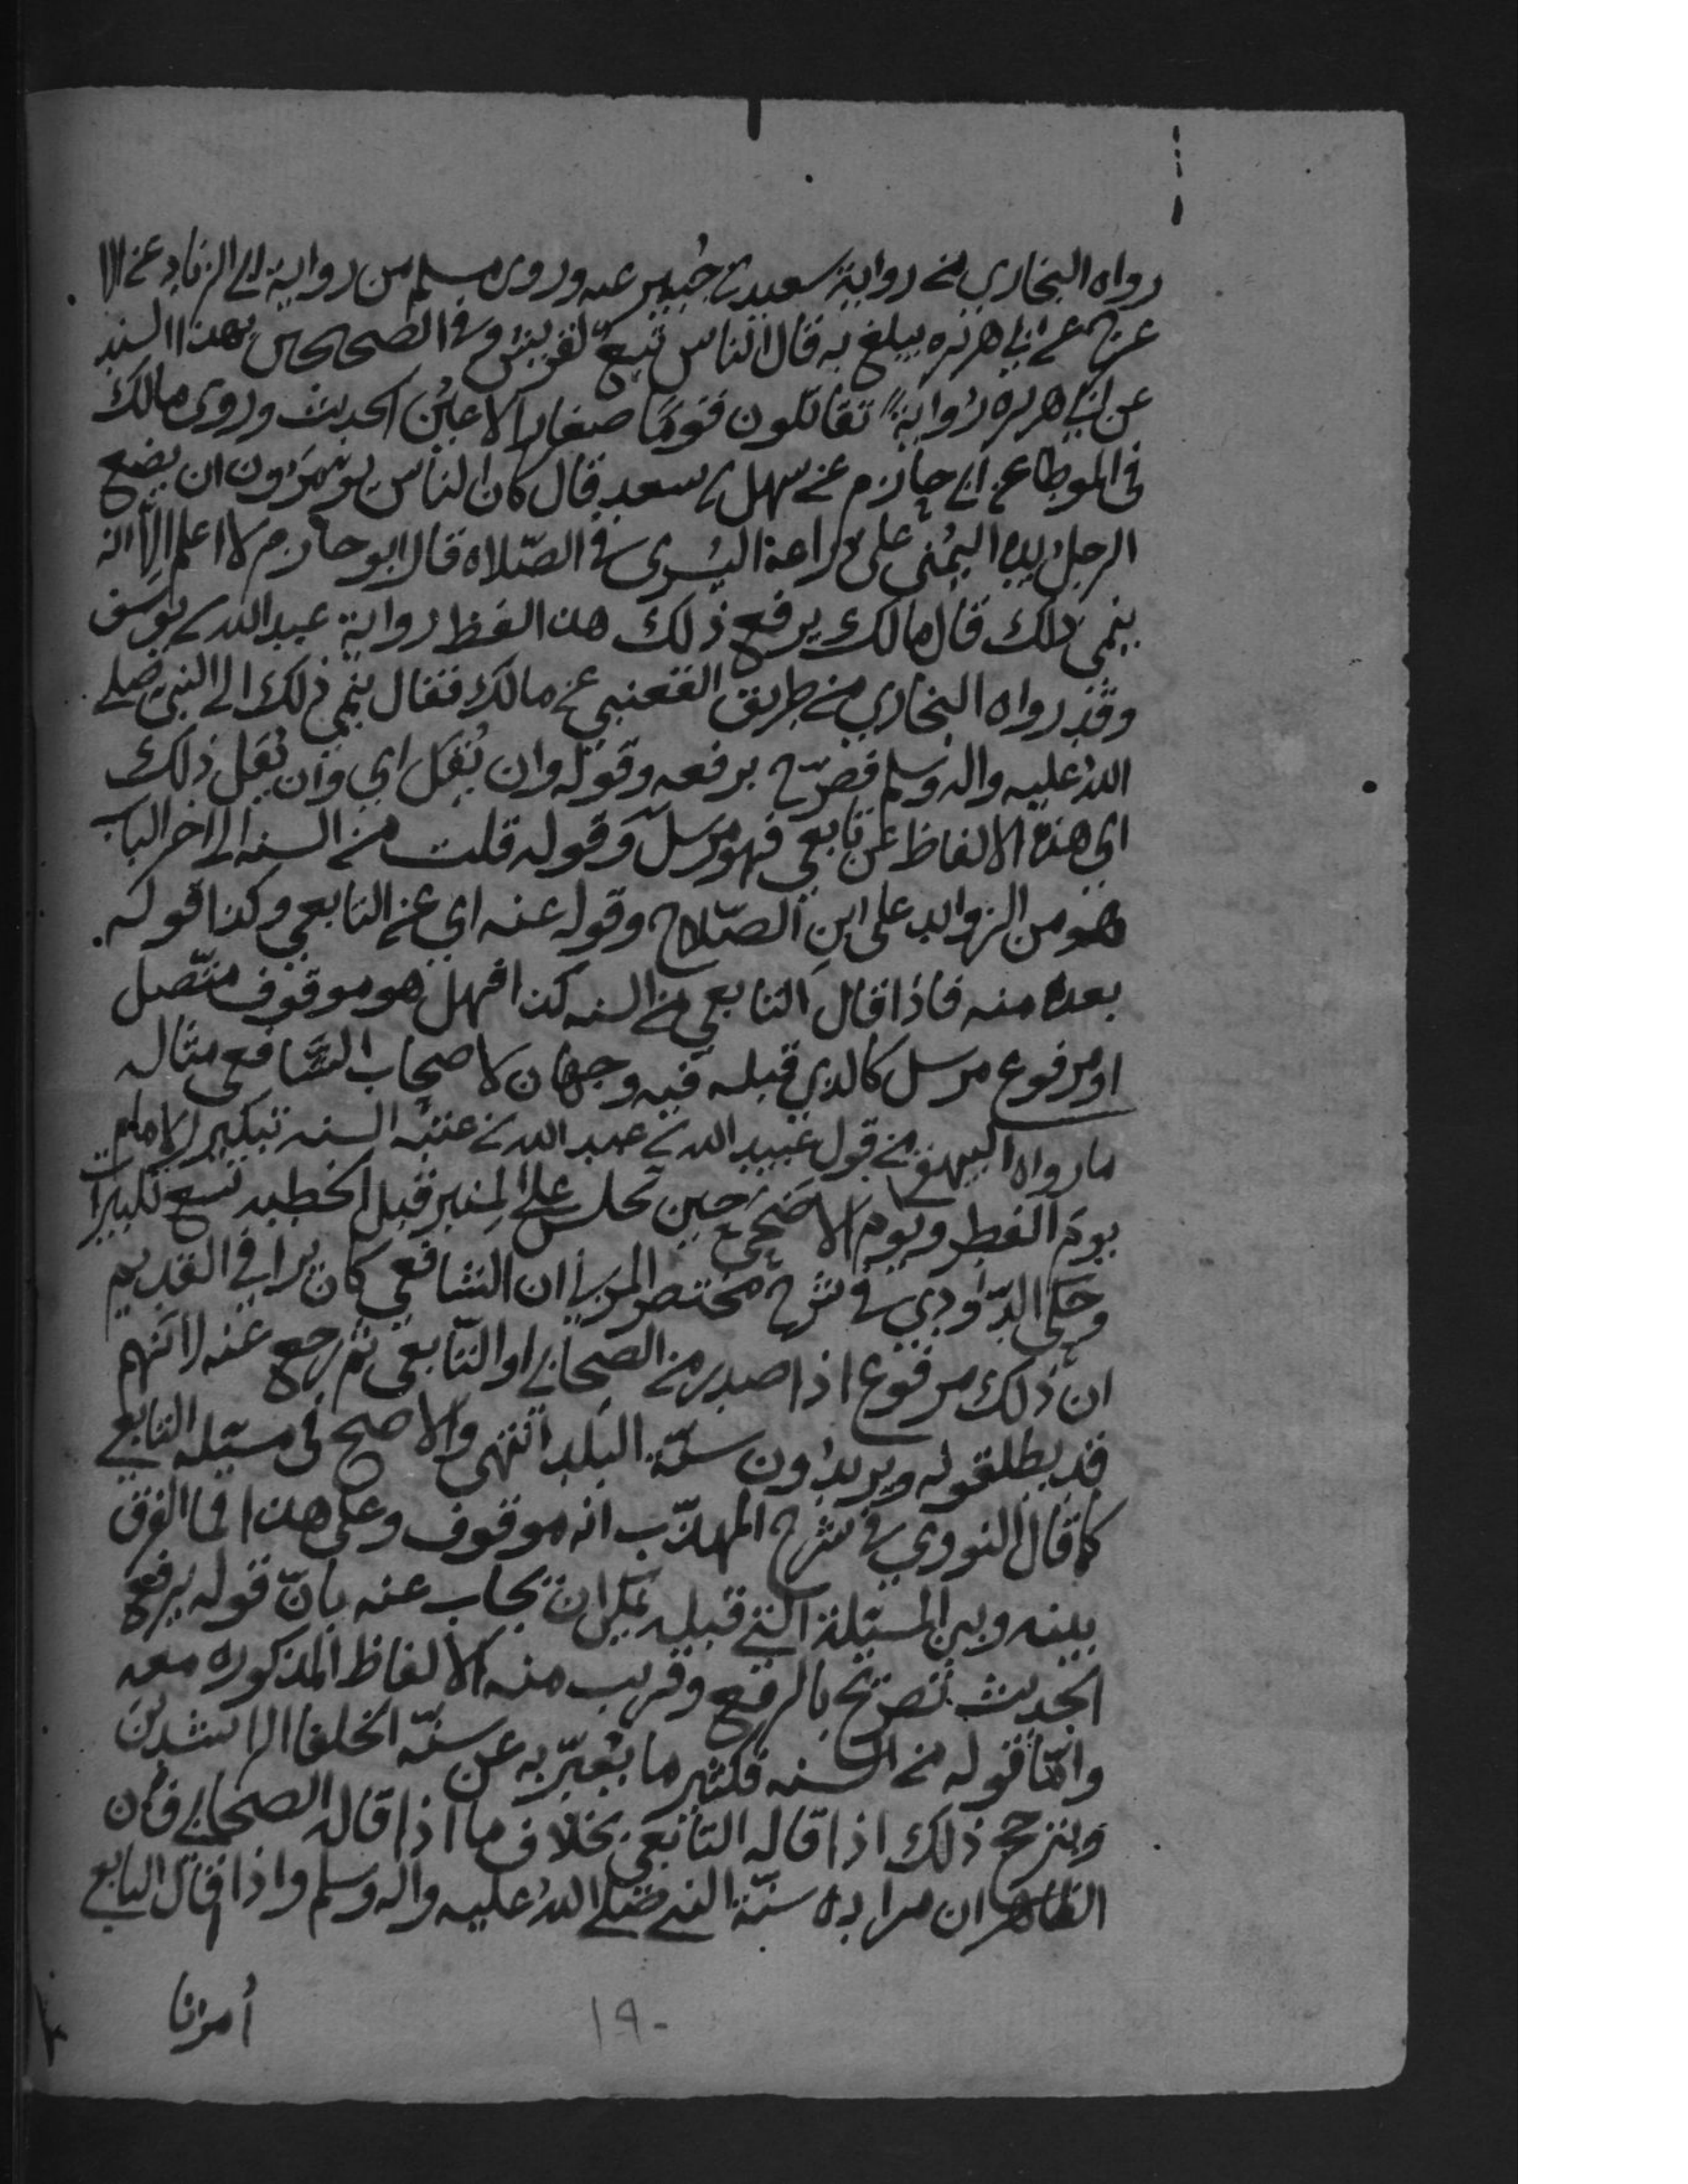 رواه البخاري من رواية سعيد بن جُبير عنه وروى مسلم من رواية ابي الزناد عن الا
عرج عن ابي هريره يبلغ به قال الناس تبعٌ لقريش وفي الصحيحين بهذا السند
عن ابي هريره روايةً تقاتلون قومًا صغار الاعيُن الحديث وروى مالك
في الموطا عن ابي حازم عن سهل بن سعد قال كان الناس يومَرون ان يضع
الرجلُ يده اليُمنى على ذراعه اليُسرى في الصّلاه قال ابو حازم لا اعلم الاّ انه
ينمى ذلك قال مالك يرفع ذلك هذا لفظ رواية عبد الله بن يوسف
وقد رواه البخاري من طريق القعنبي عن مالك فقال ينمي ذلك الى النبي صلى
اللهُ عليه واله وسلم فصرّح برفعه وقوله وان يُقل اي وان يقل ذلك
اي هذه الالفاظ عن تابعي فهو مرسل وقوله قلت من السنه الى اخر الباب
هو من الزوايد على ابن الصّلاح وقوله عنه اي عن التابعي وكذا قوله
بعده منه فاذا قال التابعي من السنه كذا فهل هو موقوف متّصل
او مرفوع مرسل كالذي قبله فيه وجهان لاصحاب الشافعي مثاله
ما رواه البيهقي من قول عُبيد الله بن عبد الله بن عتبه السنه تكبير الامام
يومَ الفطر ويوم الاضحى حين يجلس على المنبر قبل الخطبه تسع تكبيرات
وحكى الدّاودي في شرح مختصر المزني ان الشافعي كان يرا في القديم
ان ذلك مرفوع اذا صدر من الصحابي او التّابعي ثم رجع عنه لانهم
قد يطلقونه ويريدُون سنّة البلد انتهى والاصح في مسئلة التابعي
كما قال النووي في شرح المهذّب انه موقوف وعلى هذا فما الفرق
بينه وبين المسئلة التي قبله يمكن ان يجاب عنه بانّ قوله يرفع
الحديث تصريح بالرفع وقريب منه الالفاظ المذكوره معه
وامّا قوله من السنه فكثير ما يُعبّر به عن سنّة الخلفا الراشدين
ويترجح ذلك اذا قاله التابعي بخلاف ما اذا قاله الصحابي فان
الظاهر ان مراده سنّة النبي صلى اللهُ عليه واله وسلم واذا قال التابعي
أمرنا
١٩٠